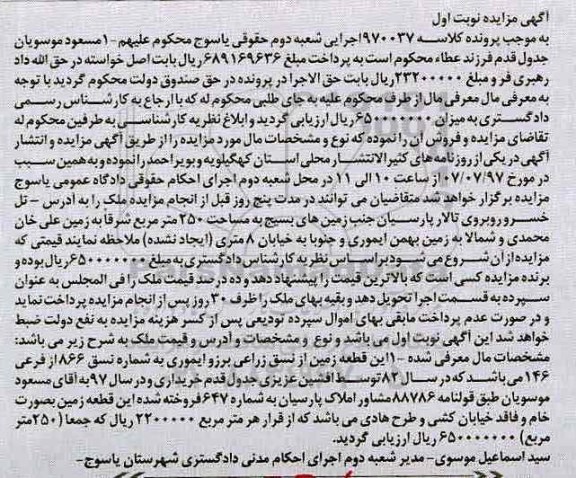 آگهی مزایده نوبت اول
به موجب پرونده کلاسه ۹۷۰۰۳۷ اجرایی شعبه دوم حقوقی یاسوج محکوم علیهم -۱ مسعود موسویان
جدول قدم فرزند عطاء محکوم است به پرداخت مبلغ ۶۸۹۱۶۹۶۳۶ ریال بابت اصل خواسته در حق اله داد
رهبری فر و مبلغ ۲۳۲۰۰۰۰۰ ریال بابت حق الاجرا در پرونده در حق صندوق دولت محکوم گردید با توجه
به معرفی مال معرفی مال از طرف محکوم علیه به جای طلبی محکوم له که با ارجاع به کارشناس رسمی
دادگستری به میزان ۶۵۰۰۰۰۰۰۰ ریال ارزیابی گردید و ابلاغ نظریه کارشناسی به طرفین محکوم له
تقاضای مزایده و فروش آن را نموده که نوع و مشخصات مال مورد مزایده را از طریق آگهی مزایده و انتشار
آگهی در یکی از روزنامه های کثیرالانتشار محلی استان کهگیلویه و بویراحمد را نموده و به همین سبب
در مورخ ۰۷/۰۷/۹۷ از ساعت ۱۰ الی ۱۱ در محل شعبه دوم اجرای احکام حقوقی دادگاه عمومی یاسوج
مزایده برگزار خواهد شد متقاضیان می توانند در مدت پنج روز قبل از انجام مزایده ملک را به ادرس - تل
خسرو روبروی تالار پارسیان جنب زمین های بسیج به مساحت ۲۵۰ متر مربع شرقا به زمین علی خان
محمدی و شمالا به زمین بهمن ایموری و جنوبا به خیابان ۸ متری (ایجاد نشده) ملاحظه نمایند قیمتی که
مزایده از ان شروع می شود بر اساس نظر به کارشناس دادگستری به مبلغ ۶۵۰۰۰۰۰۰۰ ریال بوده و
برنده مزایده کسی است که بالاترین قیمت را پیشنهاد دهد و ده درصد قیمت ملک را فی المجلس به عنوان
سپرده به قسمت اجرا تحویل دهد و بقیه بهای ملک را ظرف ۳۰ روز پس از انجام مزایده پرداخت نماید
و در صورت عدم پرداخت مابقی بهای اموال سپرده تودیعی پس از کسر هزینه مزایده به نفع دولت ضبط
خواهد شد این آگهی نوبت اول می باشد و نوع و مشخصات و آدرس و قیمت ملک به شرح زیر می باشد:
مشخصات مال معرفی شده -۱ این قطعه زمین از نسق زراعی برزو ایموری به شماره نسق ۸۶۶ از فرعی
۱۴۶ می باشد که در سال ۸۲ توسط افشین عزیزی جدول قدم خریداری و در سال ۹۷ به آقای مسعود
موسویان طبق قولنامه ۸۸۷۸۶ مشاور املاک پارسیان به شماره ۶۴۷ فروخته شده این قطعه زمین بصورت
خام و فاقد خیابان کشی و طرح هادی می باشد که از قرار هر متر مربع ۲۲۰۰۰۰۰ ریال که جمعا (۲۵۰ متر
مربع) ۶۵۰۰۰۰۰۰۰ ریال ارزیابی گردید.
سید اسماعیل موسوی - مدیر شعبه دوم اجرای احکام مدنی دادگستری شهرستان یاسوج-